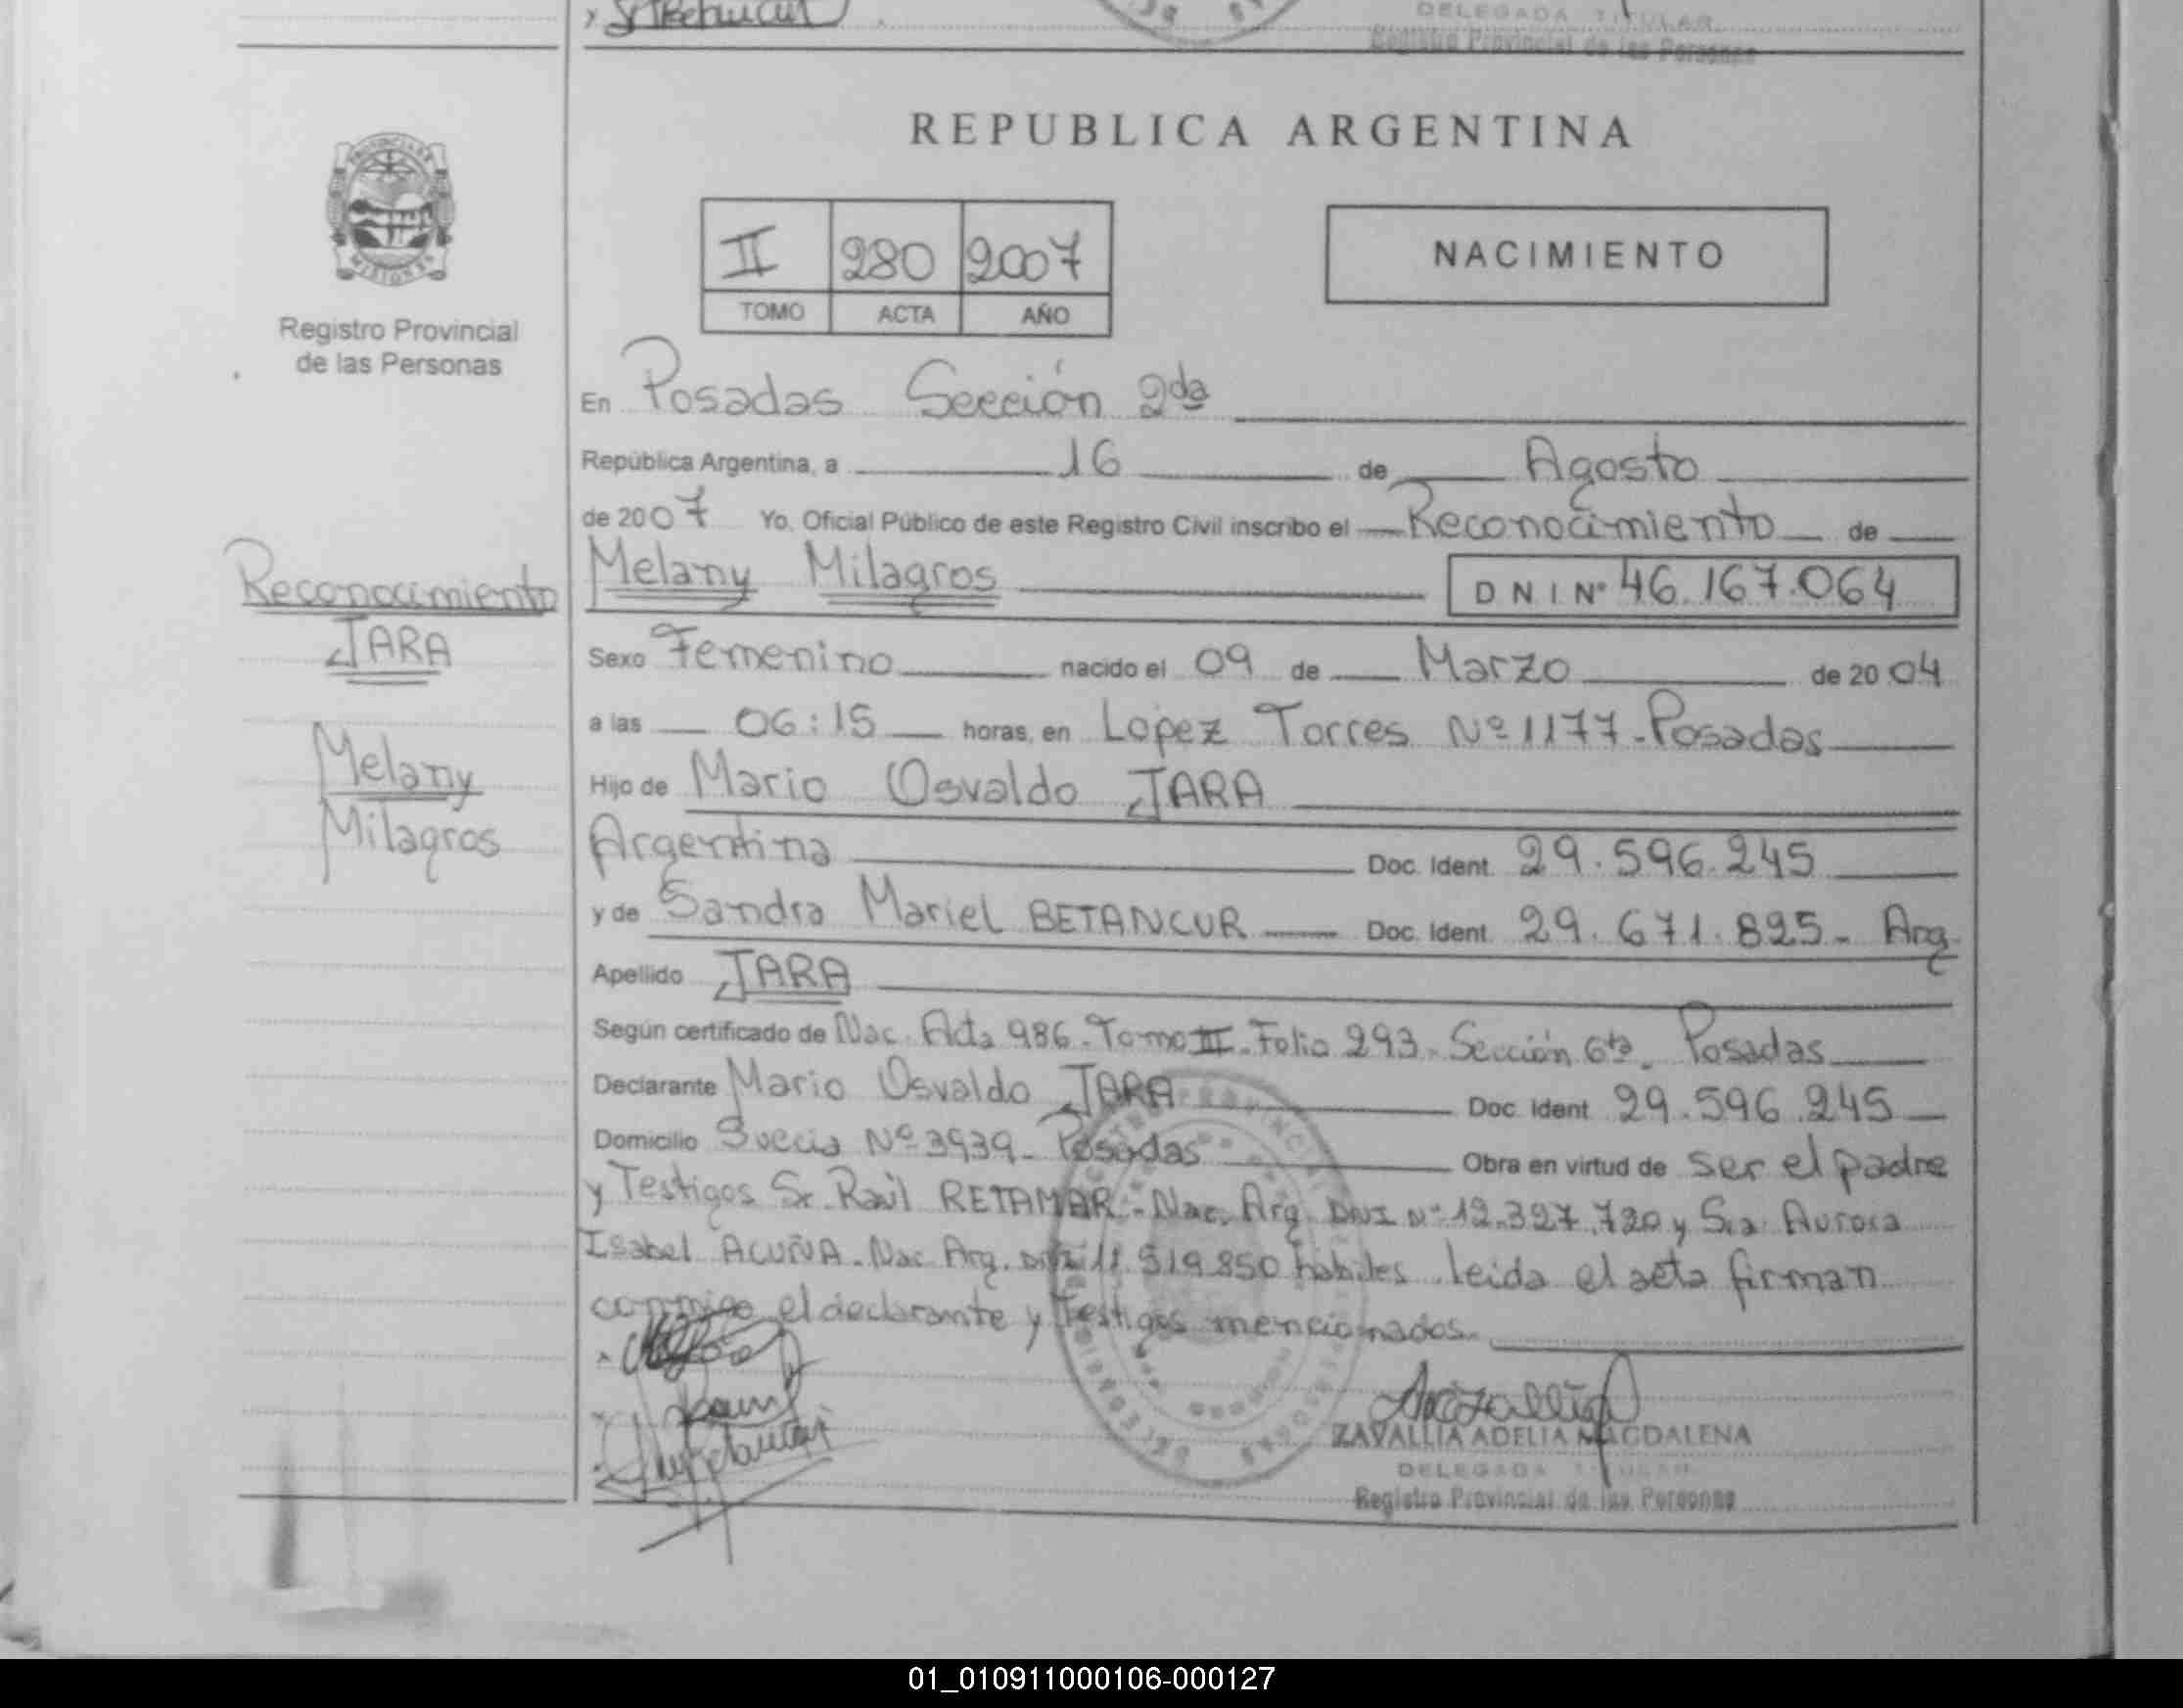 DELEGADA TITULAR
Registro Provincial de las Personas
PROVINCIA DE
MISIONES
Registro Provincial
de las Personas
Reconocimiento
JARA
Melany
Milagros
REPUBLICA ARGENTINA
II 280 2007
TOMO ACTA AÑO
NACIMIENTO
En Posadas Sección 2da
República Argentina, a 16 de Agosto
de 2007 Yo, Oficial Público de este Registro Civil inscribo el Reconocimiento de
Melany Milagros DNI Nº 46.167.064
Sexo Femenino nacido el 09 de Marzo de 2004
a las 06:15 horas, en Lopez Torres Nº 1177-Posadas
Hijo de Mario Osvaldo JARA
Argentina Doc. Ident. 29.596.245
y de Sandra Mariel BETANCUR Doc. Ident. 29.671.825- Arg
Apellido JARA
Según certificado de Nac. Acta 986-Tomo III-Folio 293-Sección 6ta- Posadas
Declarante Mario Osvaldo JARA Doc. Ident. 29.596.245
Domicilio Suecia Nº 3939- Posadas Obra en virtud de ser el padre
y Testigos Sr. Raúl RETAMAR-Nac. Arg. DNI Nº 12.327.720 y Sra Aurora
Isabel ACUÑA-Nac Arg. DNI 11.519.850 habiles leida el acta firman
conmigo el declarante y Testigos mencionados
ZAVALLIA ADELIA MAGDALENA
DELEGADA TITULAR
Registro Provincial de las Personas
01_010911000106-000127